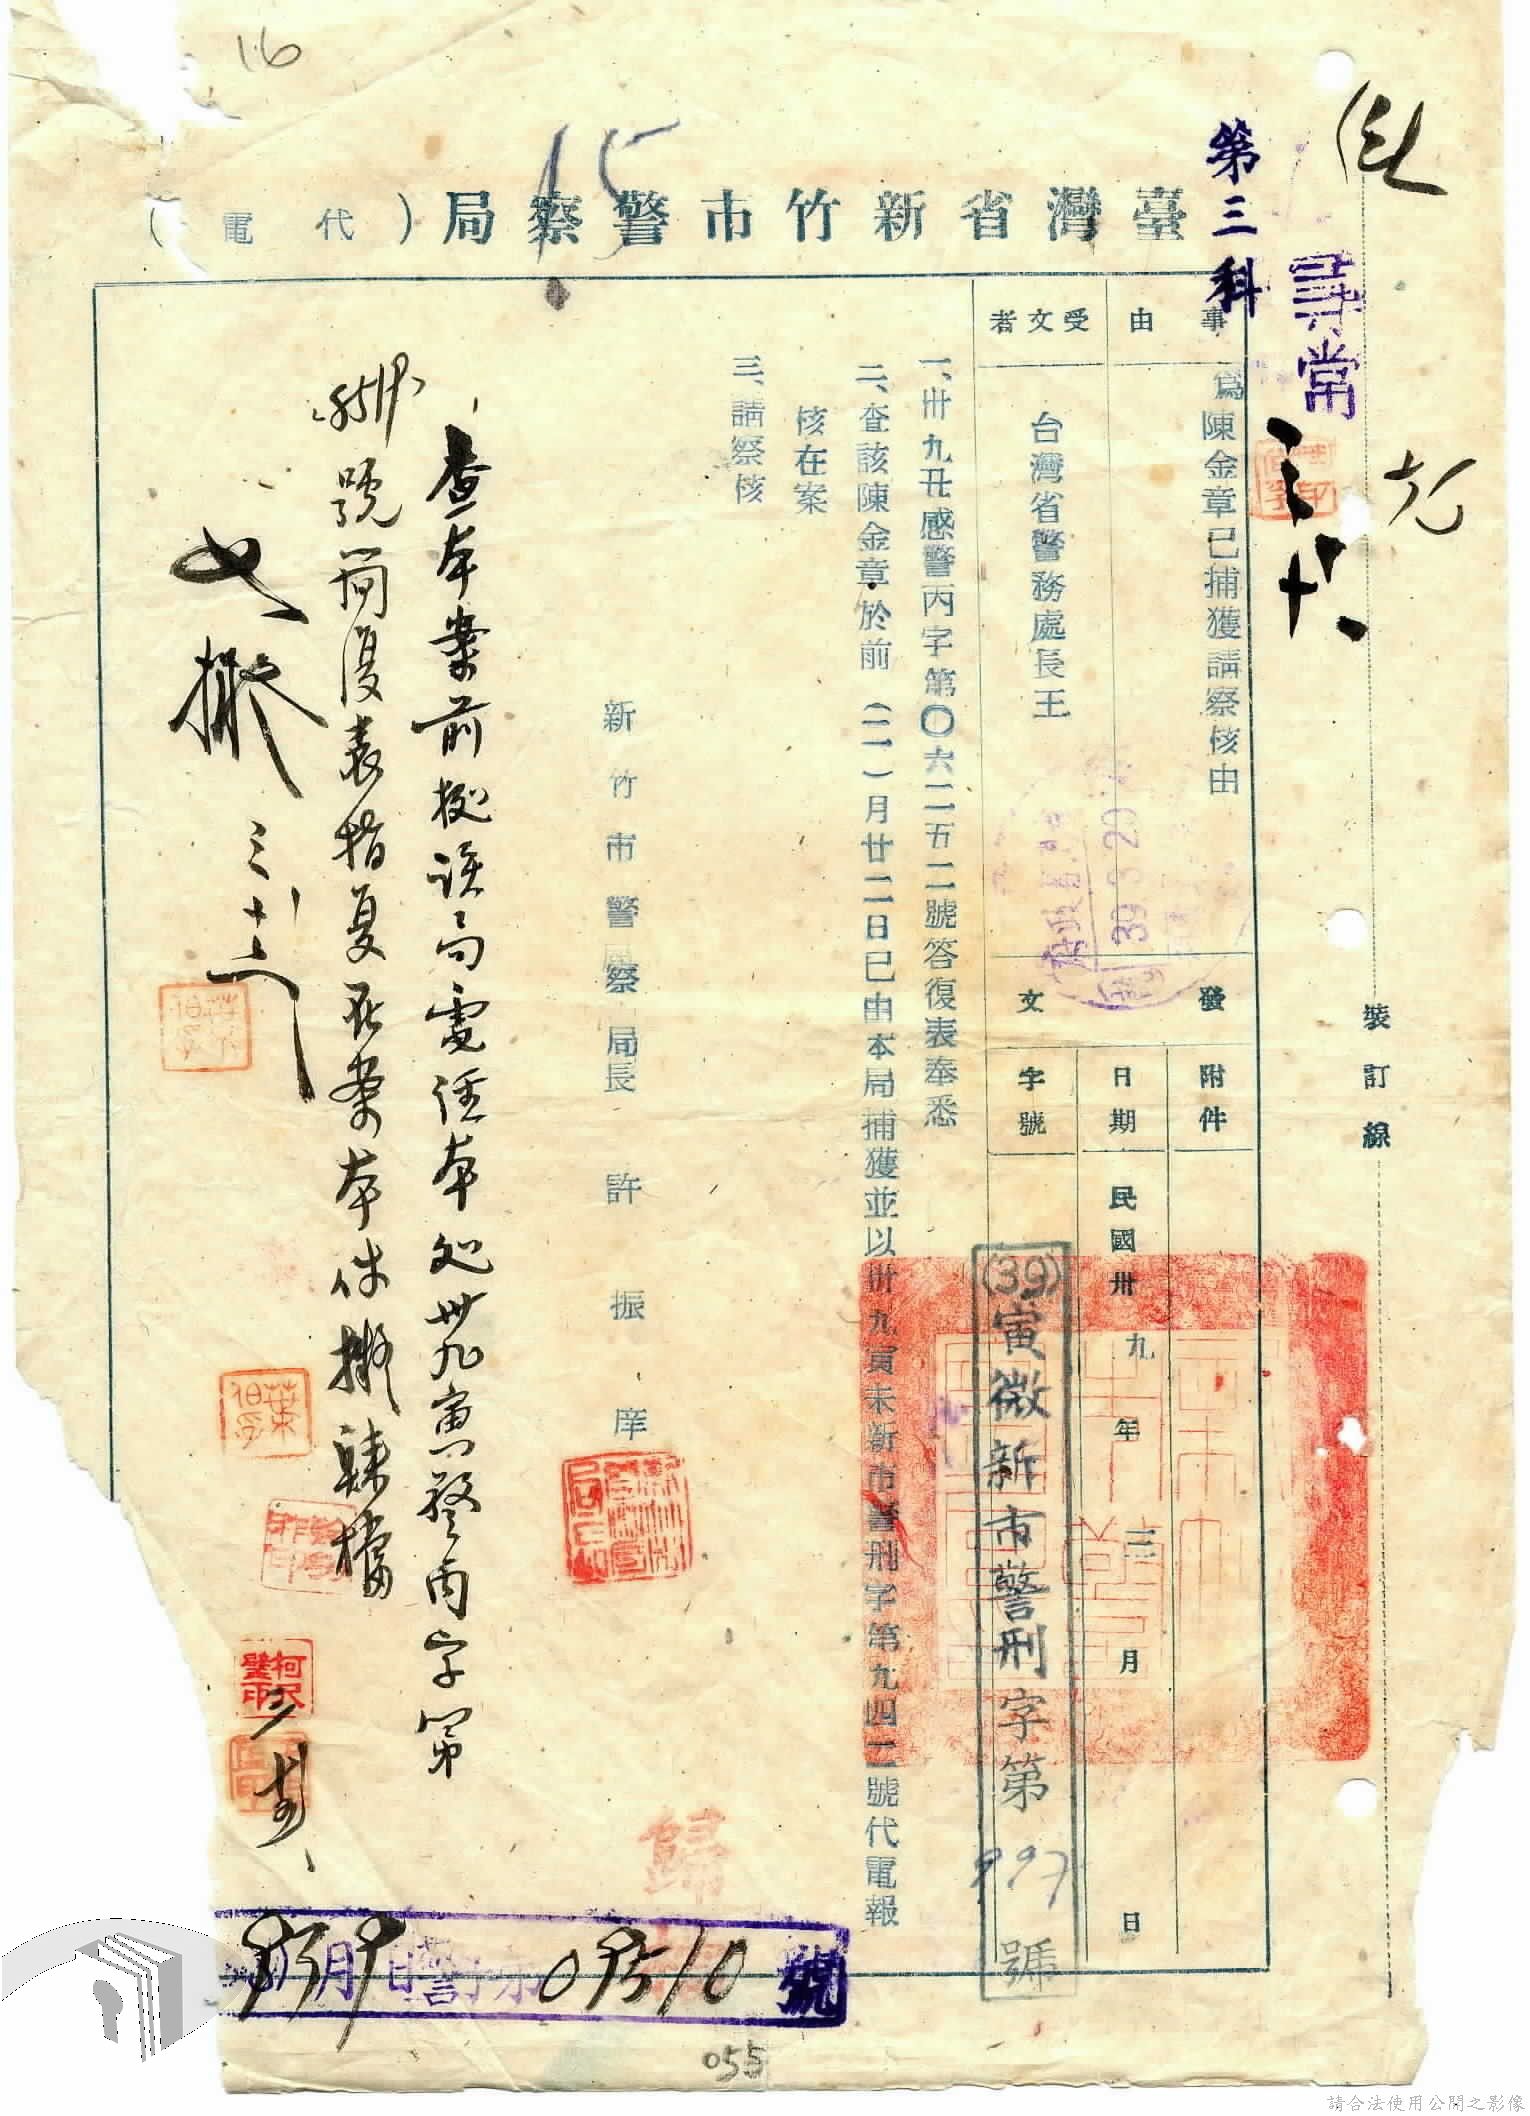 16
15
第三科
尋常
臺灣省新竹市警察局（代電）
事由
為陳金章已捕獲請察核由
受文者
台灣省警務處長王
發文
附件
日期
民國卅九年三月 日
字號
(39)寅微新市警刑字第997號
39 3 29
裝訂線
一、卅九丑感警丙字第〇六二五二號答復表奉悉
二、查該陳金章於前（二一）月廿二日已由本局捕獲並以卅九寅未新市警刑字第九四二號代電報
核在案
三、請察核
新竹市警察局長 許振庠
查本案前據該局電經本処卅九寅警丙字第
號簡復表指复在案本件擬歸檔
歸檔
月 日 警 號
055
請合法使用公開之影像